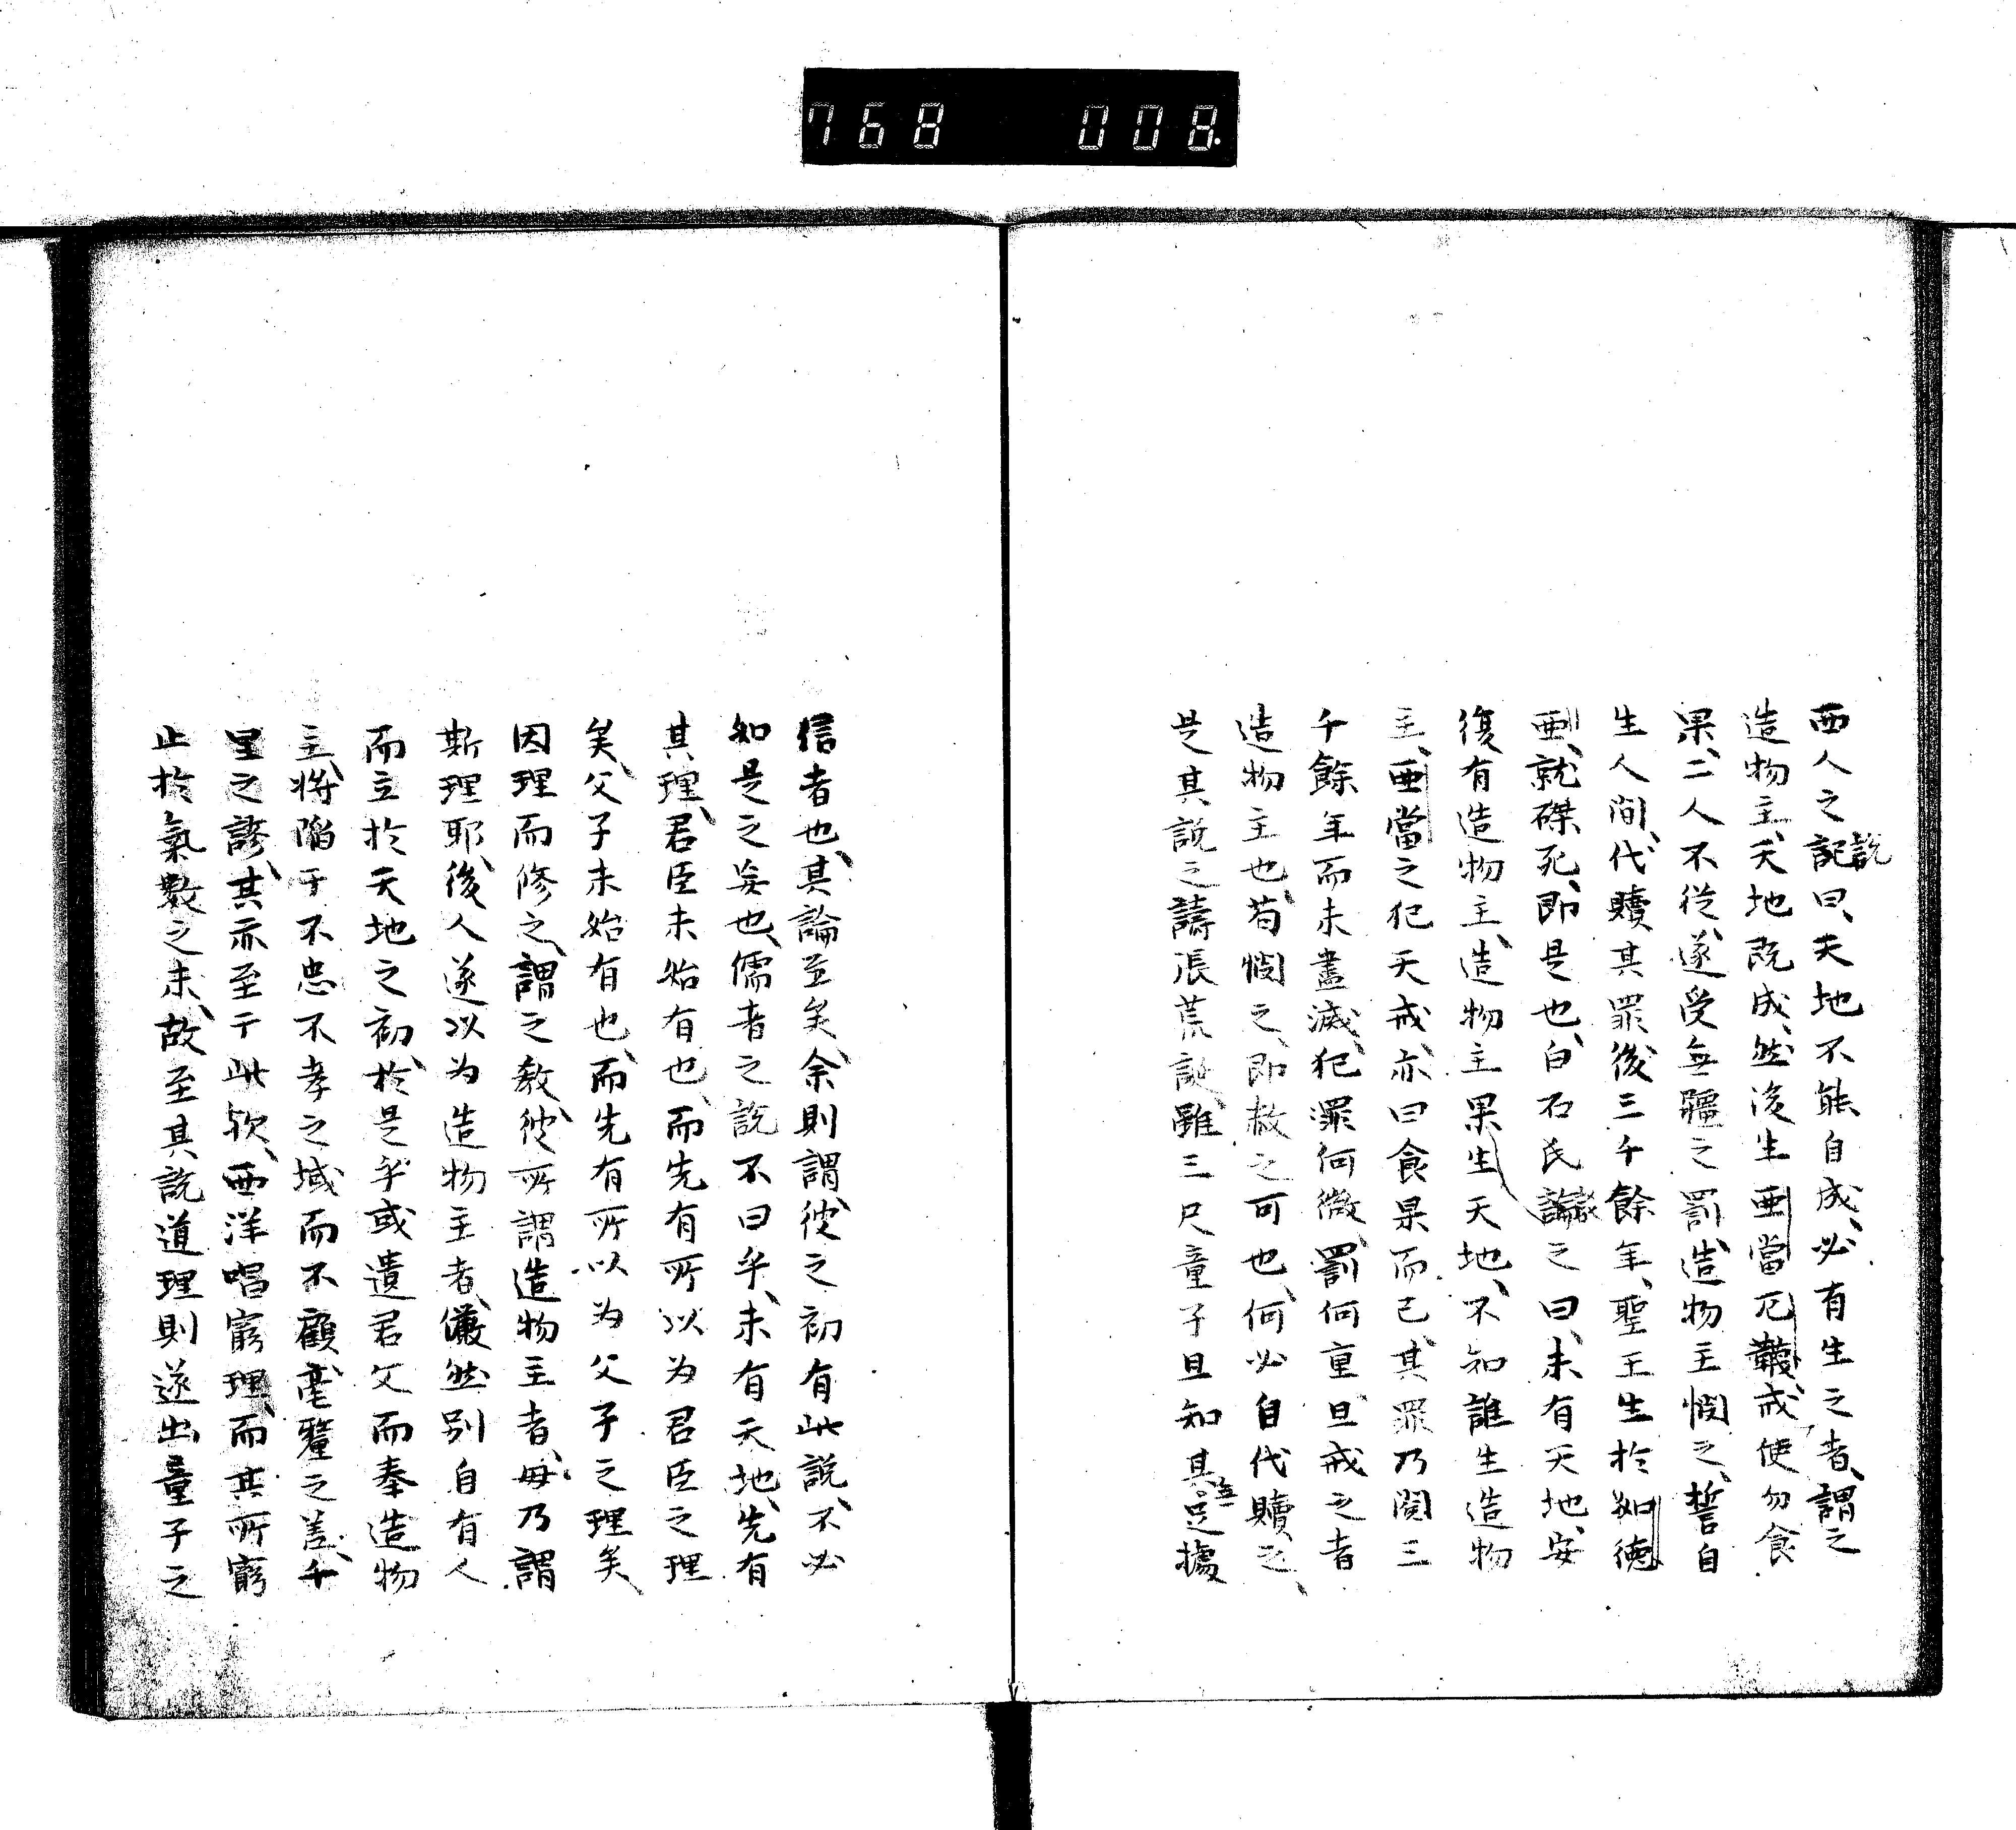 768 008.
西人之記説曰、天地不能自成、必有生之者、謂之
造物主、天地既成、然後生亜當厄襪、戒使勿食
果、二人不従、遂受無疆之罰、造物主憫之、誓自
生人間、代贖其罪後三千餘年、聖王生於如徳
亜、就磔死、即是也、白石氏論之曰、未有天地、安
復有造物主、造物主果生天地、不知誰生造物
主、亜當之犯天戒、亦曰食果而已、其罪乃閲三
千餘年而未盡滅、犯罪何微、罰何重、且戒之者
造物主也、苟憫之、即赦之可也、何必自代贖之、
是其説之譸張荒誕、雖三尺童子且知其無足據
信者也、其論至矣、余則謂、彼之初有此説、不必
如是之妄也、儒者之説不曰乎、未有天地、先有
其理、君臣未始有也、而先有所以为君臣之理
矣、父子未始有也、而先有所以为父子之理矣
因理而修之、謂之教、彼所謂造物主者、毋乃謂
斯理耶、後人遂以为造物主者、儼然別自有人
而立於天地之初、於是乎或遺君父而奉造物
主、将陥于不忠不孝之域而不顧、毫釐之差、千
里之謬、其亦至于此歟、西洋唱窮理、而其所窮
止於氣數之末、故至其説道理則遂出童子之